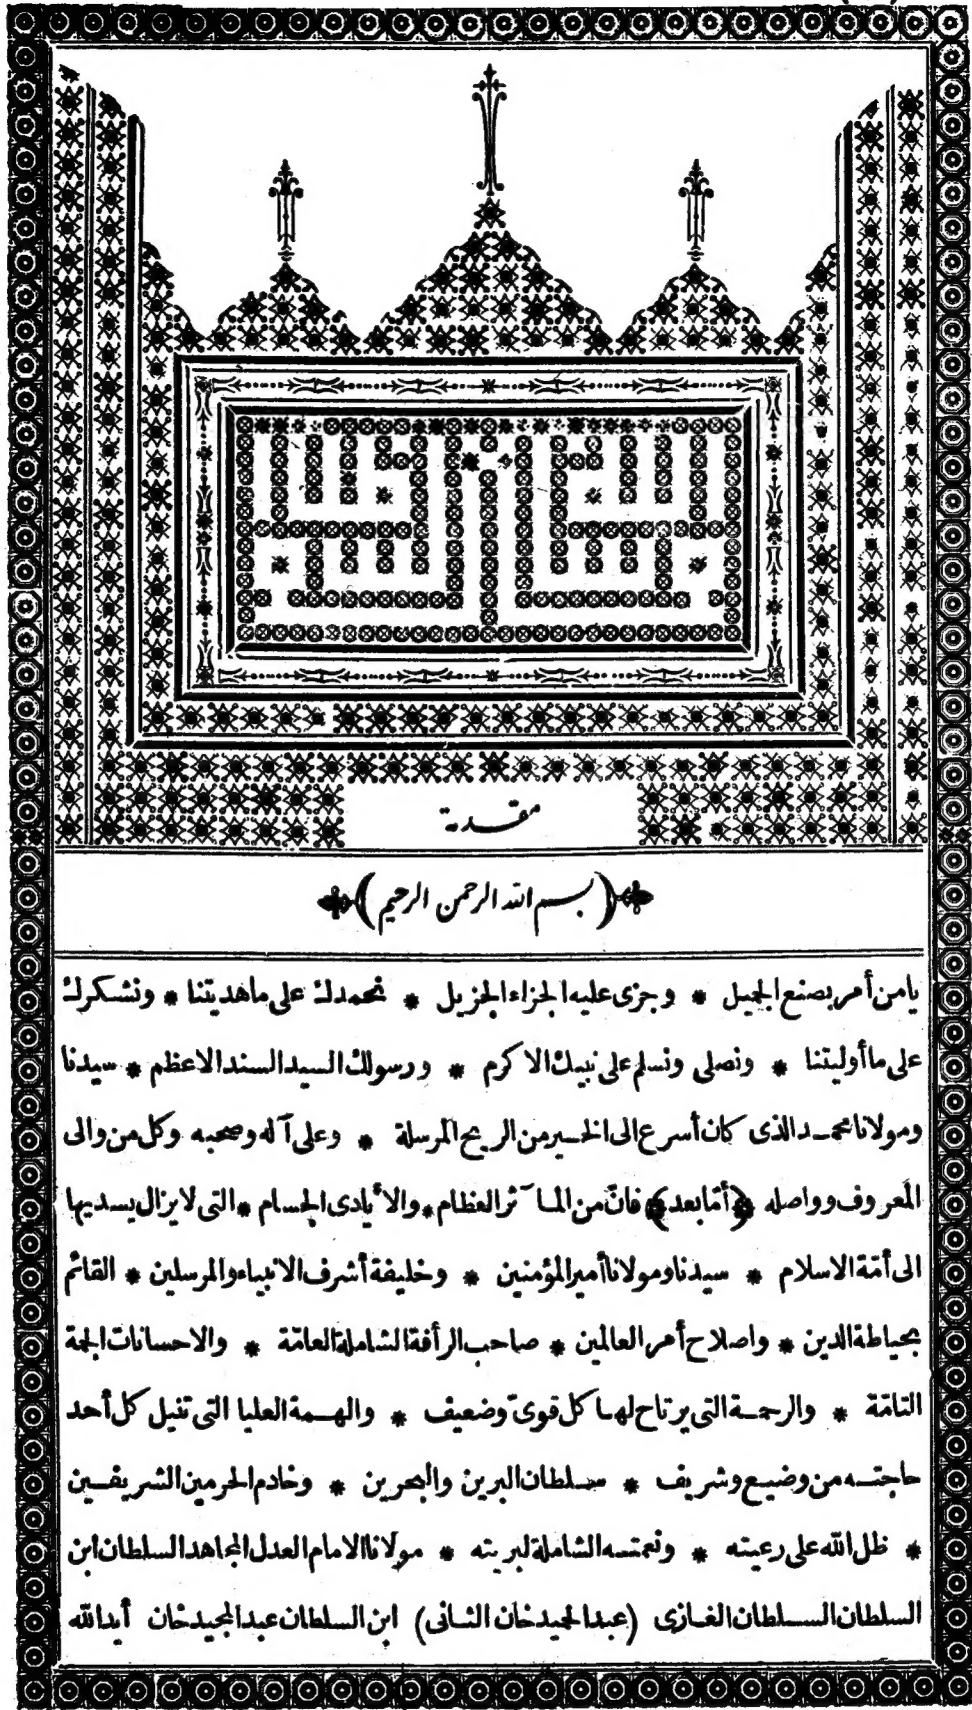 مقدمة
﴿بسم الله الرحمن الرحيم﴾
يامن أمر بصنع الجميل * وجزى عليه الجزاء الجزيل * نحمدك على ما هديتنا * ونشكرك
على ما أوليتنا * ونصلى ونسلم على نبيك الاكرم * ورسولك السيد السند الاعظم * سيدنا
ومولانا محمد الذى كان أسرع الى الخير من الريح المرسلة * وعلى آله وصحبه وكل من والى
المعروف وواصله ﴿أمّا بعد﴾ فانّ من المآثر العظام * والأيادى الجسام * التى لا يزال يسديها
الى أمّة الاسلام * سيدنا ومولانا أمير المؤمنين * وخليفة أشرف الانبياء والمرسلين * القائم
بحياطة الدين * واصلاح أمر العالمين * صاحب الرأفة الشاملة العامّة * والاحسانات الجمة
التامّة * والرحمة التى يرتاح لها كل قوىّ وضعيف * والهمة العليا التى تنيل كل أحد
حاجته من وضيع وشريف * سلطان البرين والبحرين * وخادم الحرمين الشريفين
* ظل الله على رعيته * ونعمته الشاملة لبريته * مولانا الامام العدل المجاهد السلطان ابن
السلطان السلطان الغازى (عبد الحميد خان الثانى) ابن السلطان عبد المجيد خان أيد الله